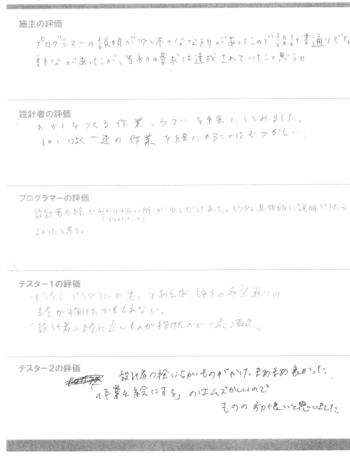 施主の評価
プログラマーの説明が少し不十分な所があったので設計書通りでな
があったが、当初の要求は達成されていたと思う。
設計者の評価
おかしをつくる作業を絵にしてみました。
一連の作業を絵にするのはむつかしい。
プログラマーの評価
設計者の絵で分かりづらい所が少しだけあった。もう少し具体的に説明できたら
よかったと思う。
テスター1の評価
もう少しプログラムが
絵が描けたかもしれない。
設計者の絵に近いものが描けたので一応満足。
テスター2の評価
設計者の絵にちかいものがかけ、まあまあ良かった。
「作業を絵にする」のはムズかしいので
ものの方が良いと思いました。